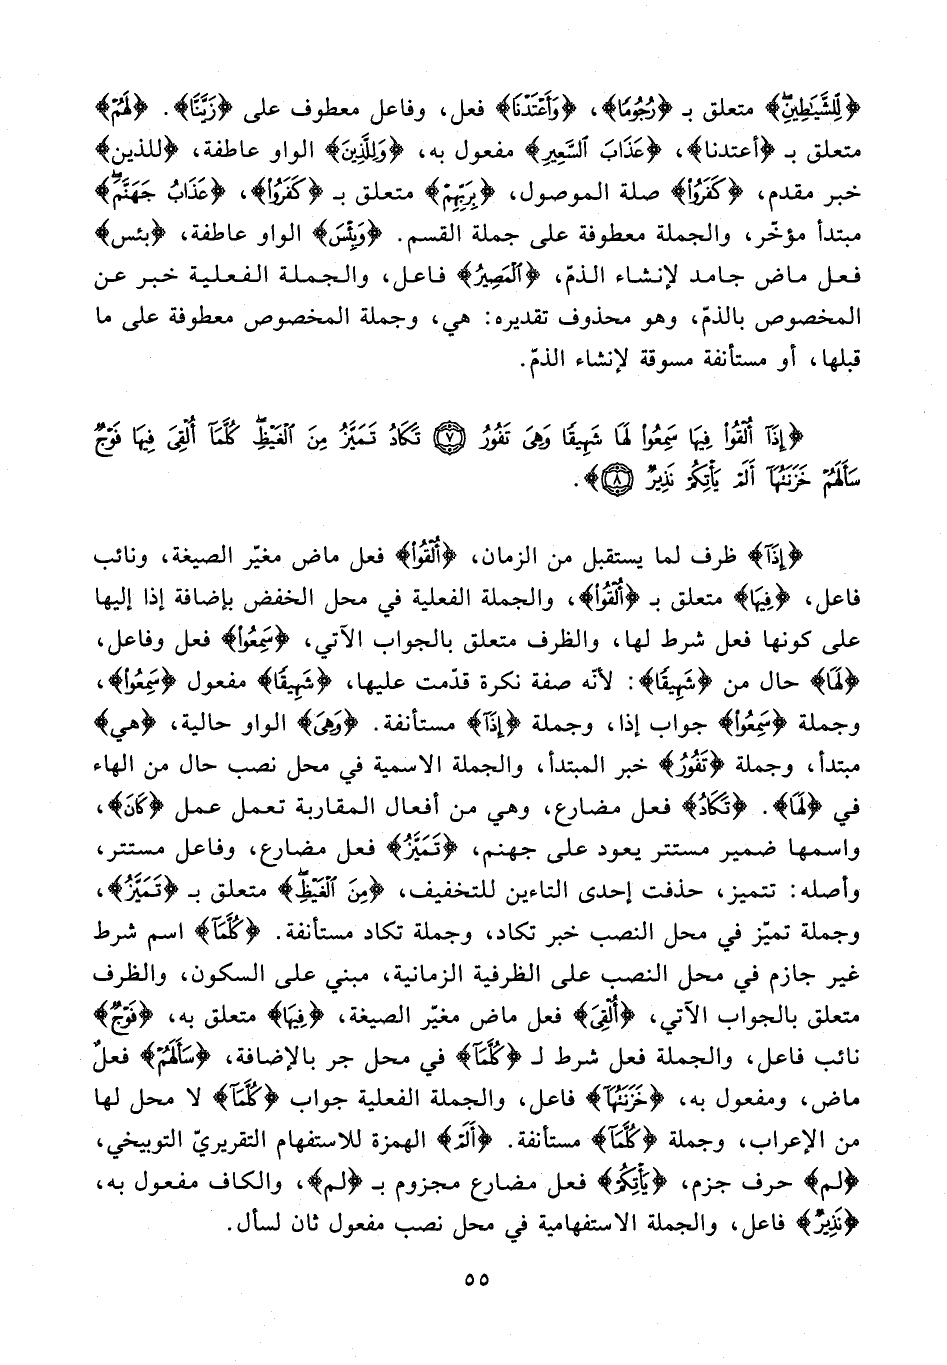 ﴿لِّلشَّيَـٰطِينِۖ﴾ متعلق بـ ﴿رُجُومًا﴾، ﴿وَأَعْتَدْنَا﴾ فعل، وفاعل معطوف على ﴿زَيَّنَّا﴾. ﴿لَهُمْ﴾
متعلق بـ ﴿أعتدنا﴾، ﴿عَذَابَ ٱلسَّعِيرِ﴾ مفعول به، ﴿وَلِلَّذِينَ﴾ الواو عاطفة، ﴿للذين﴾
خبر مقدم، ﴿كَفَرُوا۟﴾ صلة الموصول، ﴿بِرَبِّهِمْ﴾ متعلق بـ ﴿كَفَرُوا۟﴾، ﴿عَذَابُ جَهَنَّمَۖ﴾
مبتدأ مؤخّر، والجملة معطوفة على جملة القسم. ﴿وَبِئْسَ﴾ الواو عاطفة، ﴿بئس﴾
فعل ماض جامد لإنشاء الذمّ، ﴿ٱلْمَصِيرُ﴾ فاعل، والجملة الفعلية خبر عن
المخصوص بالذمّ، وهو محذوف تقديره: هي، وجملة المخصوص معطوفة على ما
قبلها، أو مستأنفة مسوقة لإنشاء الذمّ.
﴿إِذَآ أُلْقُوا۟ فِيهَا سَمِعُوا۟ لَهَا شَهِيقًا وَهِىَ تَفُورُ ٧ تَكَادُ تَمَيَّزُ مِنَ ٱلْغَيْظِۖ كُلَّمَآ أُلْقِىَ فِيهَا فَوْجٌ
سَأَلَهُمْ خَزَنَتُهَآ أَلَمْ يَأْتِكُمْ نَذِيرٌ ٨﴾.
﴿إِذَآ﴾ ظرف لما يستقبل من الزمان، ﴿أُلْقُوا۟﴾ فعل ماض مغيّر الصيغة، ونائب
فاعل، ﴿فِيهَا﴾ متعلق بـ ﴿أُلْقُوا۟﴾، والجملة الفعلية في محل الخفض بإضافة إذا إليها
على كونها فعل شرط لها، والظرف متعلق بالجواب الآتي، ﴿سَمِعُوا۟﴾ فعل وفاعل،
﴿لَهَا﴾ حال من ﴿شَهِيقًا﴾: لأنّه صفة نكرة قدّمت عليها، ﴿شَهِيقًا﴾ مفعول ﴿سَمِعُوا۟﴾،
وجملة ﴿سَمِعُوا۟﴾ جواب إذا، وجملة ﴿إِذَآ﴾ مستأنفة. ﴿وَهِىَ﴾ الواو حالية، ﴿هي﴾
مبتدأ، وجملة ﴿تَفُورُ﴾ خبر المبتدأ، والجملة الاسمية في محل نصب حال من الهاء
في ﴿لَهَا﴾. ﴿تَكَادُ﴾ فعل مضارع، وهي من أفعال المقاربة تعمل عمل ﴿كَانَ﴾،
واسمها ضمير مستتر يعود على جهنم، ﴿تَمَيَّزُ﴾ فعل مضارع، وفاعل مستتر،
وأصله: تتميز، حذفت إحدى التاءين للتخفيف، ﴿مِنَ ٱلْغَيْظِۖ﴾ متعلق بـ ﴿تَمَيَّزُ﴾،
وجملة تميّز في محل النصب خبر تكاد، وجملة تكاد مستأنفة. ﴿كُلَّمَآ﴾ اسم شرط
غير جازم في محل النصب على الظرفية الزمانية، مبني على السكون، والظرف
متعلق بالجواب الآتي، ﴿أُلْقِىَ﴾ فعل ماض مغيّر الصيغة، ﴿فِيهَا﴾ متعلق به، ﴿فَوْجٌ﴾
نائب فاعل، والجملة فعل شرط لـ ﴿كُلَّمَآ﴾ في محل جر بالإضافة، ﴿سَأَلَهُمْ﴾ فعلٌ
ماض، ومفعول به، ﴿خَزَنَتُهَآ﴾ فاعل، والجملة الفعلية جواب ﴿كُلَّمَآ﴾ لا محل لها
من الإعراب، وجملة ﴿كُلَّمَآ﴾ مستأنفة. ﴿أَلَمْ﴾ الهمزة للاستفهام التقريريّ التوبيخي،
﴿لم﴾ حرف جزم، ﴿يَأْتِكُمْ﴾ فعل مضارع مجزوم بـ ﴿لم﴾، والكاف مفعول به،
﴿نَذِيرٌ﴾ فاعل، والجملة الاستفهامية في محل نصب مفعول ثان لسأل.
٥٥